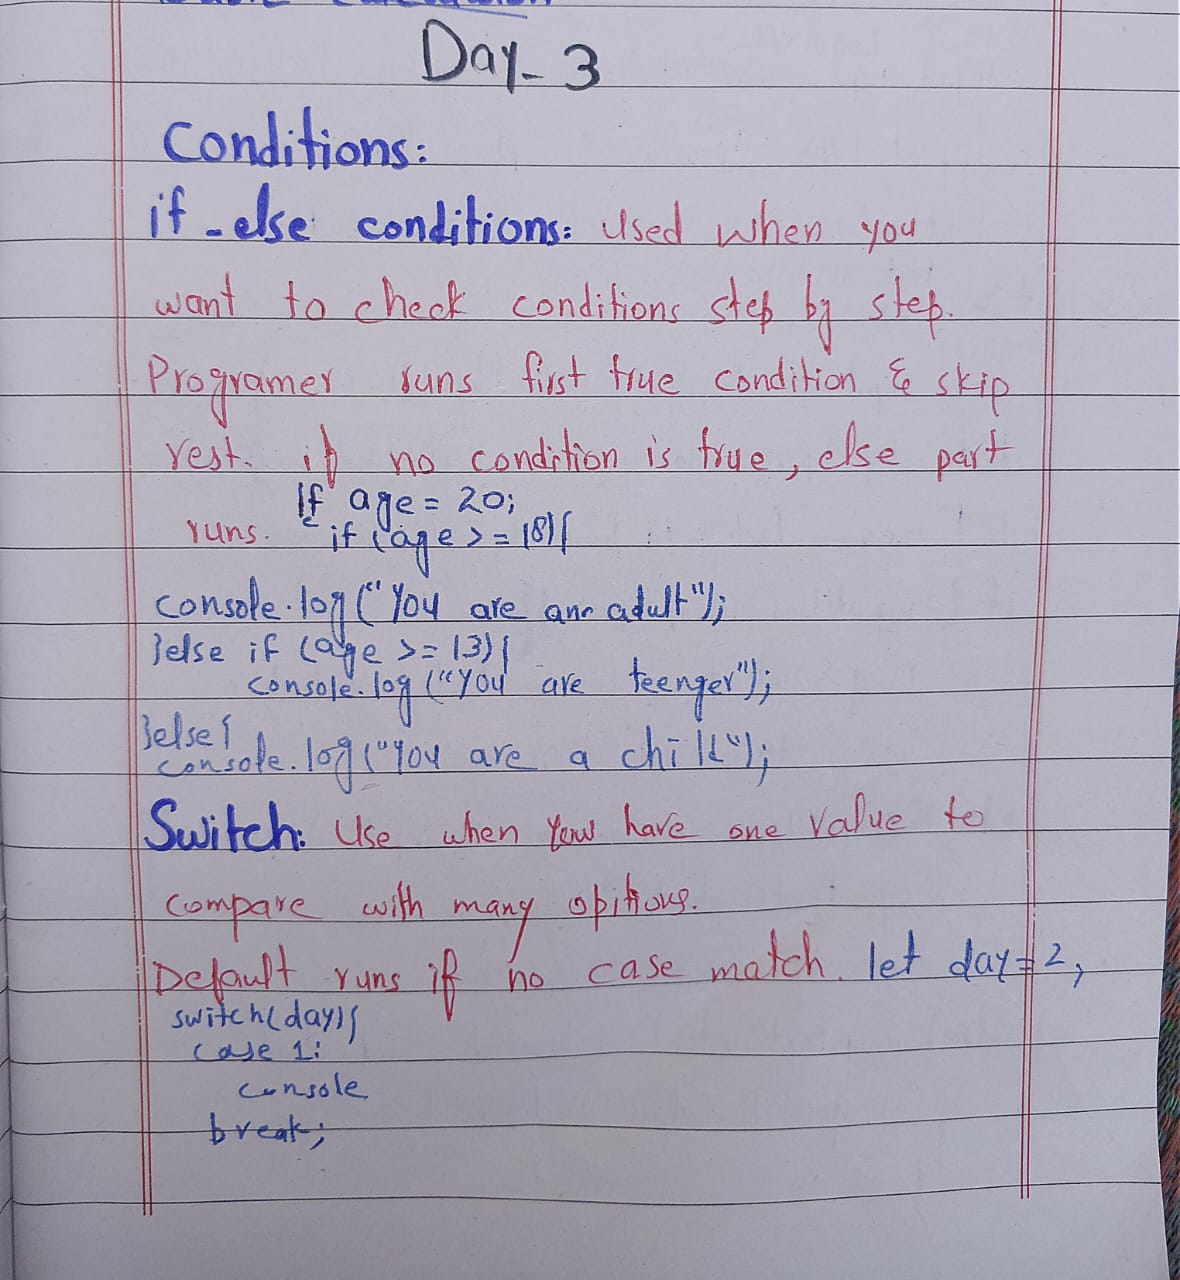 Day-3
Conditions:
if-else conditions: used when you
want to check conditions step by step.
Programer runs first true condition & skip
rest. if no condition is true, else part
If age = 20;
runs. if (age >= 18){
console.log("You are an adult");
}else if (age >= 13){
console.log("you are teenger");
}else{
console.log("you are a child");
Switch: Use when you have one value to
compare with many opitions.
Default runs if no case match. let day=2;
switch(day){
case 1:
console
break;